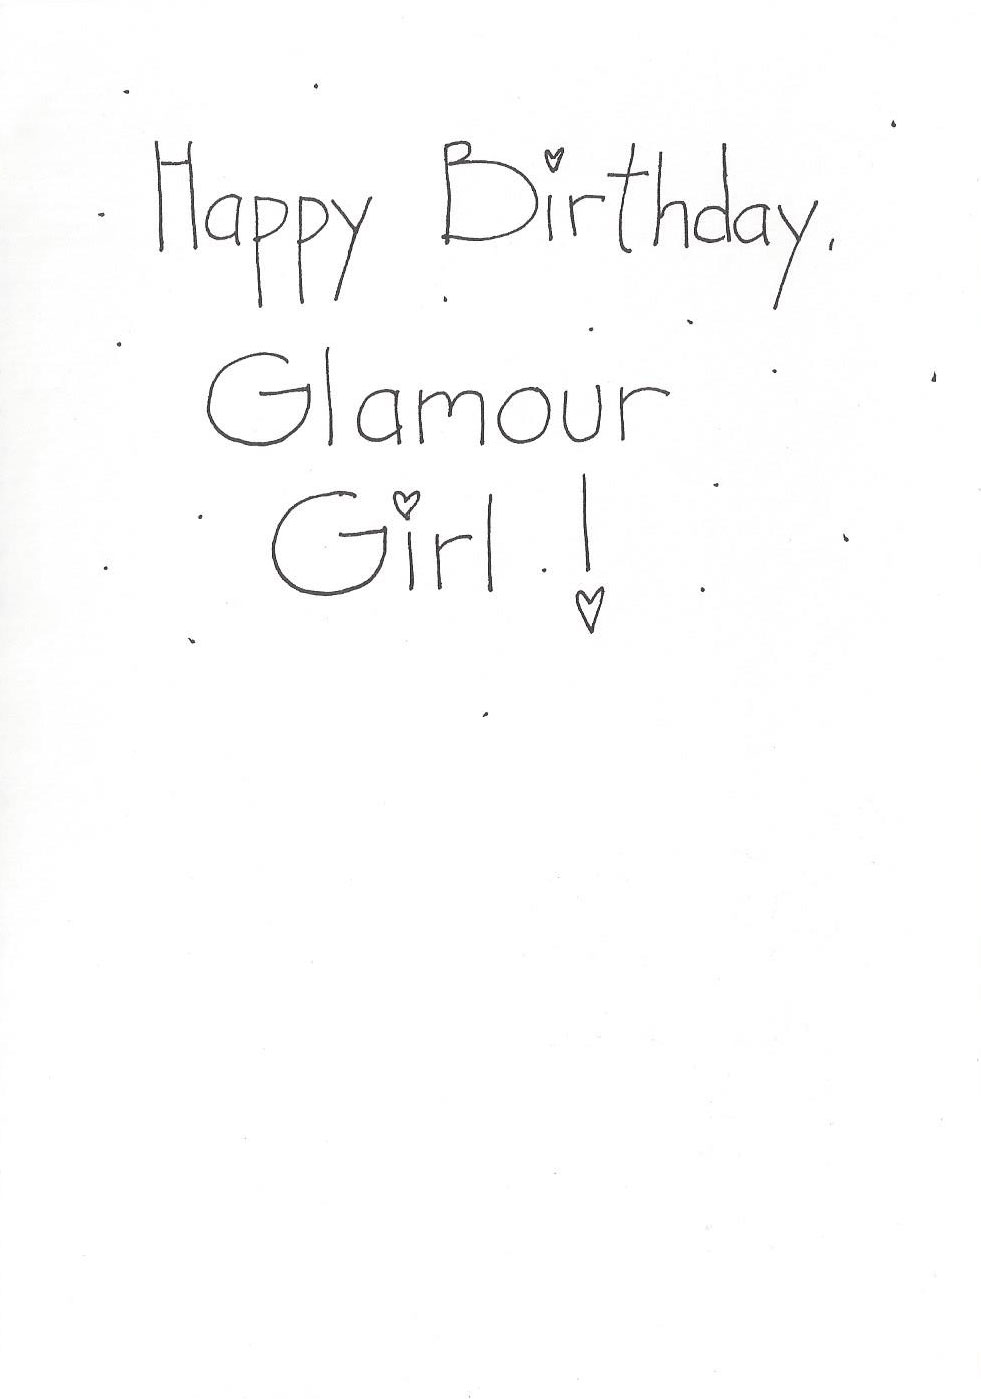 Happy Birthday,
Glamour
Girl !